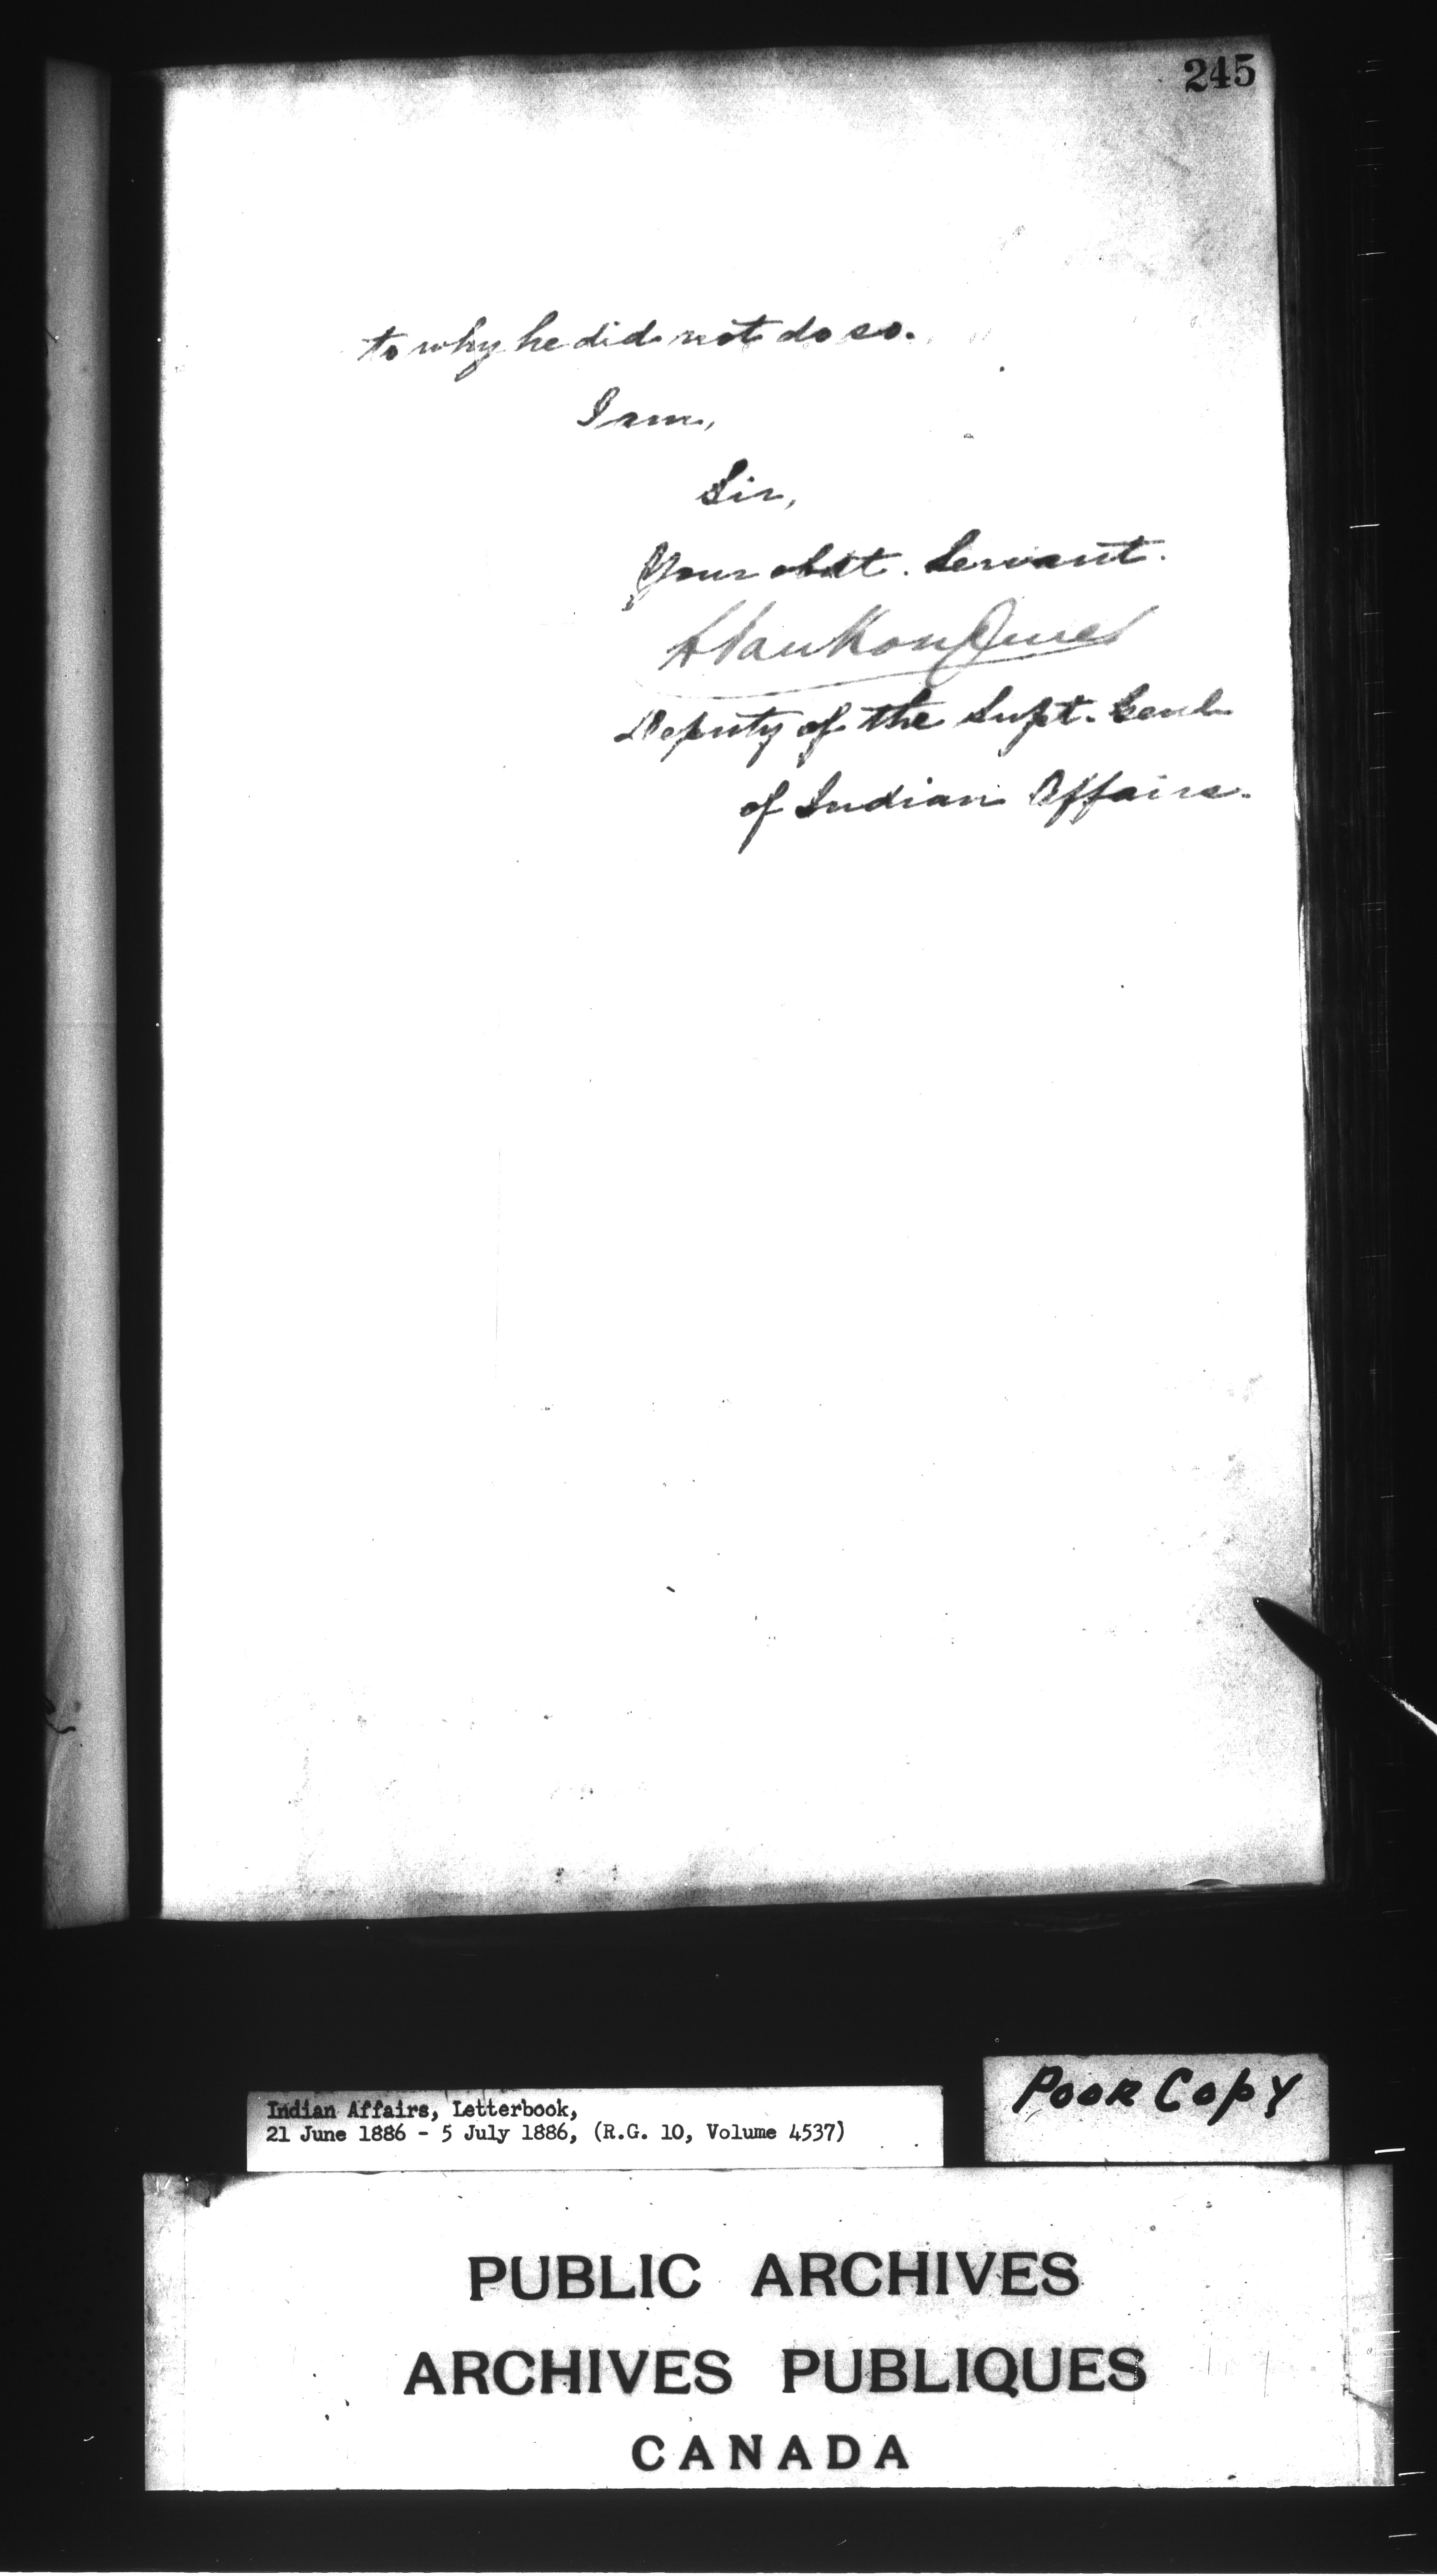 245
to why he did not do so.
I am,
Sir,
Your obdt. Servant.
L VanKoughnet
Deputy of the Supt. Genl
of Indian Affairs.
Poor Copy
Indian Affairs, Letterbook,
21 June 1886 - 5 July 1886, (R.G. 10, Volume 4537)
PUBLIC ARCHIVES
ARCHIVES PUBLIQUES
CANADA